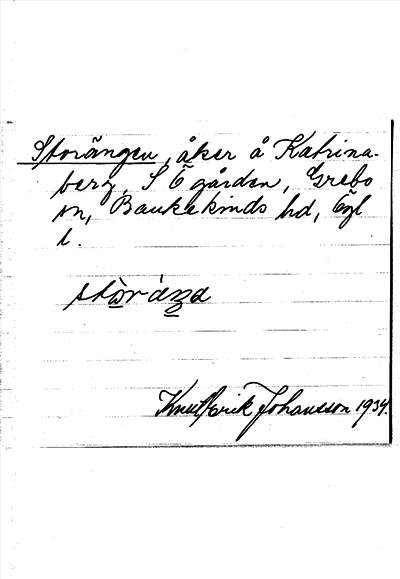 Storängen, åker å Katrina-
berg, S Ö gården, Grebo
sn, Bankekinds hd, Ögl
l.
stòràŋa
Knut Erik Johansson 1934.